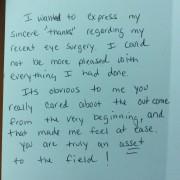 I wanted to express my
sincere "thanks" regarding my
recent eye surgery. I could
not be more pleased with
everything I had done.
Its obvious to me you
really cared about the out come
from the very beginning, and
that made me feel at ease.
You are truly an asset
to the field!